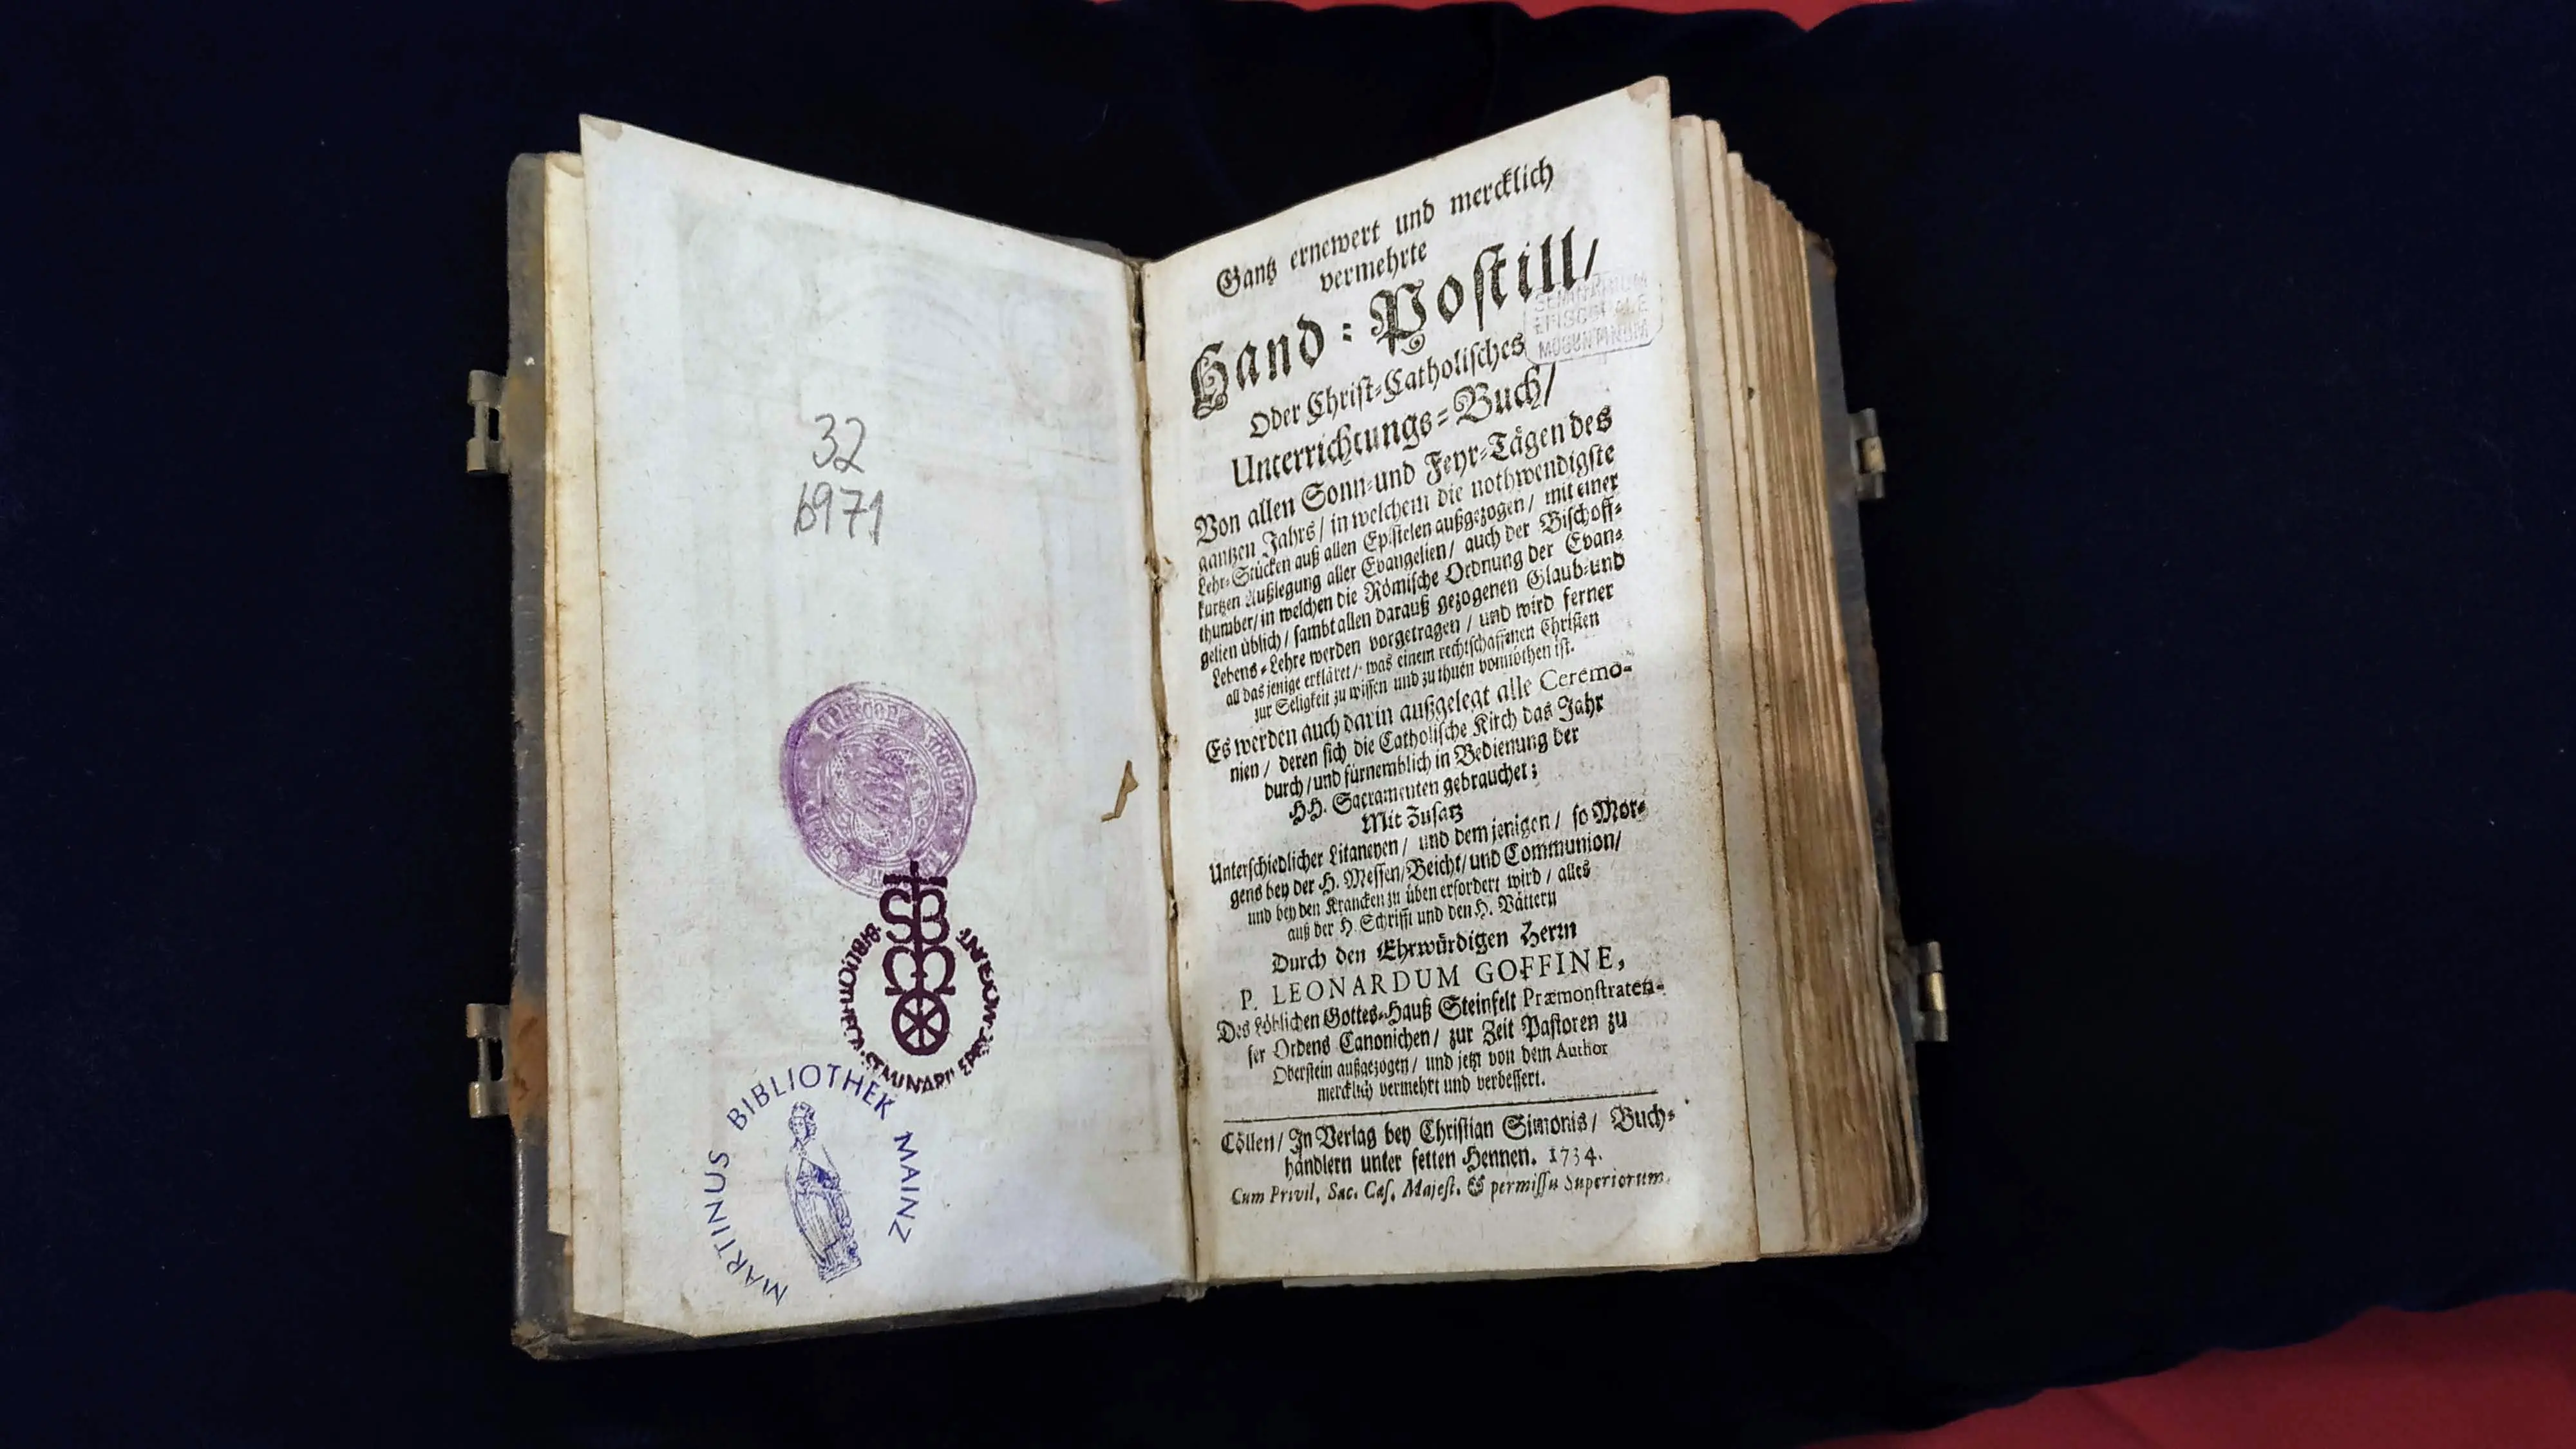 32
6971
BIBLIOTHECA SEMINARII EPISC. MOGUNT.
SB
M
MARTINUS BIBLIOTHEK MAINZ
Gantz ernewert und mercklich
vermehrte
Hand-Postill/
SEMINARIUM
EPISCOPALE
MOGUNTINUM
Oder Christ-Catholisches
Unterrichtungs-Buch/
Von allen Sonn-und Feyr-Tägen des
gantzen Jahrs/ in welchem die nothwendigste
Lehr-Stücken auß allen Epistelen außgezogen/ mit einer
kurtzen Außlegung aller Evangelien/ auch der Bischoff-
thumber/ in welchen die Römische Ordnung der Evan-
gelien üblich/ sambt allen darauß gezogenen Glaub-und
Lebens-Lehre werden vorgetragen/ und wird ferner
all das jenige erkläret/ was einem rechtschaffenen Christen
zur Seligkeit zu wissen und zu thuen vonnöthen ist.
Es werden auch darin außgelegt alle Ceremo-
nien/ deren sich die Catholische Kirch das Jahr
durch/ und fürnemblich in Bedienung der
HH. Sacramenten gebrauchet;
Mit Zusatz
Unterschiedlicher Litaneyen/ und dem jenigen/ so Mor-
gens bey der H. Messen/ Beicht/ und Communion/
und bey den Krancken zu üben erfordert wird/ alles
auß der H. Schrifft und den H. Vättern
Durch den Ehrwürdigen Herrn
P. LEONARDUM GOFFINE,
Des Löblichen Gottes-Hauß Steinfelt Præmonstraten-
ser Ordens Canonichen/ zur Zeit Pastoren zu
Oberstein außgezogen/ und jetzt von dem Author
mercklich vermehrt und verbessert.
Cöllen/ In Verlag bey Christian Simonis/ Buch-
händlern unter fetten Hennen. 1734.
Cum Privil. Sac. Cæs. Majest. & permissu Superiorum.